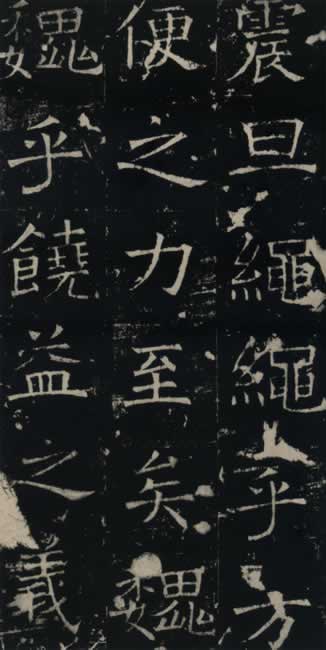 震旦繩繩乎方
便之力至矣巍
巍乎饒益之義